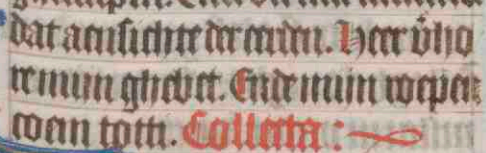 dat aensichte der eerden. Heer v̈hó
re mijn ghebet. Ende mijn roepen
coem totti. Collecta: